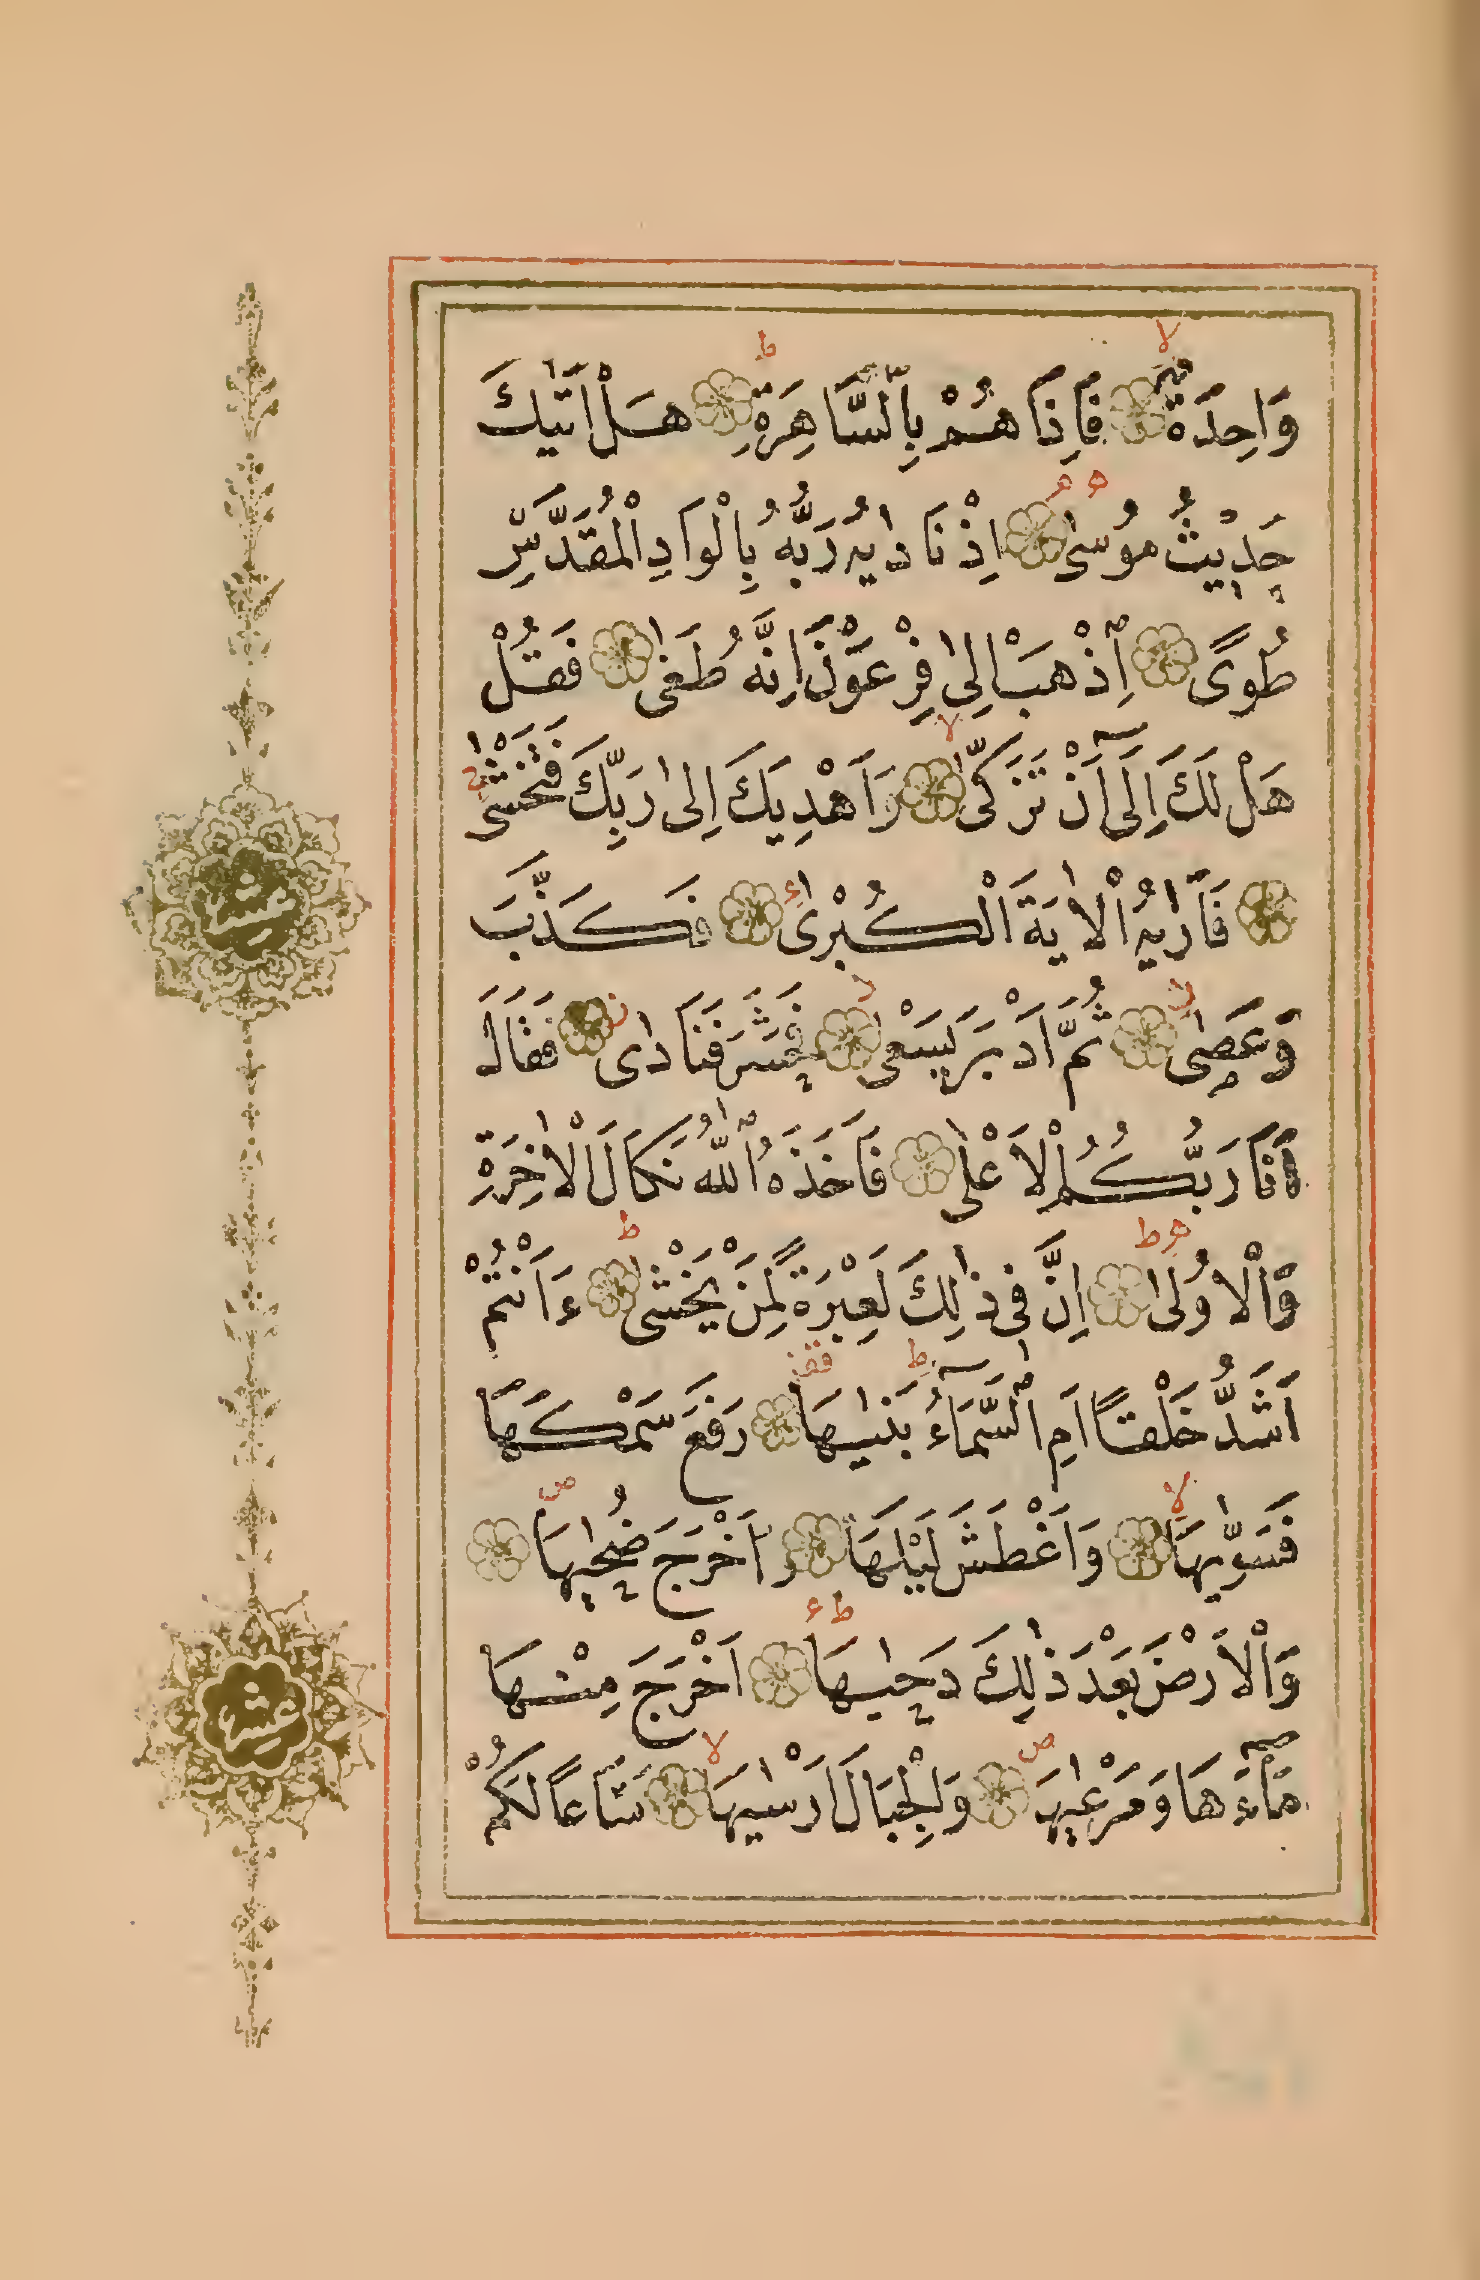 وَاحِدَةٌ فَاِذَا هُمْ بِالسَّاهِرَةِ هَلْ اَتٰيكَ
حَدِيثُ مُوسٰى اِذْ نَادٰيهُ رَبُّهُ بِالْوَادِ الْمُقَدَّسِ
طُوًى اِذْهَبْ اِلٰى فِرْعَوْنَ اِنَّهُ طَغٰى فَقُلْ
هَلْ لَكَ اِلَى اَنْ تَزَكّٰى وَاَهْدِيَكَ اِلٰى رَبِّكَ فَتَخْشٰى
فَاَرٰيهُ الْاٰيَةَ الْكُبْرٰى فَكَذَّبَ
وَعَصٰى ثُمَّ اَدْبَرَ يَسْعٰى فَحَشَرَ فَنَادٰى فَقَالَ
اَنَا رَبُّكُمُ الْاَعْلٰى فَاَخَذَهُ اللّٰهُ نَكَالَ الْاٰخِرَةِ
وَالْاُولٰى اِنَّ فِى ذٰلِكَ لَعِبْرَةً لِمَنْ يَخْشٰى ءَاَنْتُمْ
اَشَدُّ خَلْقًا اَمِ السَّمَآءُ بَنٰيهَا رَفَعَ سَمْكَهَا
فَسَوّٰيهَا وَاَغْطَشَ لَيْلَهَا وَاَخْرَجَ ضُحٰيهَا
وَالْاَرْضَ بَعْدَ ذٰلِكَ دَحٰيهَا اَخْرَجَ مِنْهَا
مَآءَهَا وَمَرْعٰيهَا وَالْجِبَالَ اَرْسٰيهَا مَتَاعًا لَكُمْ